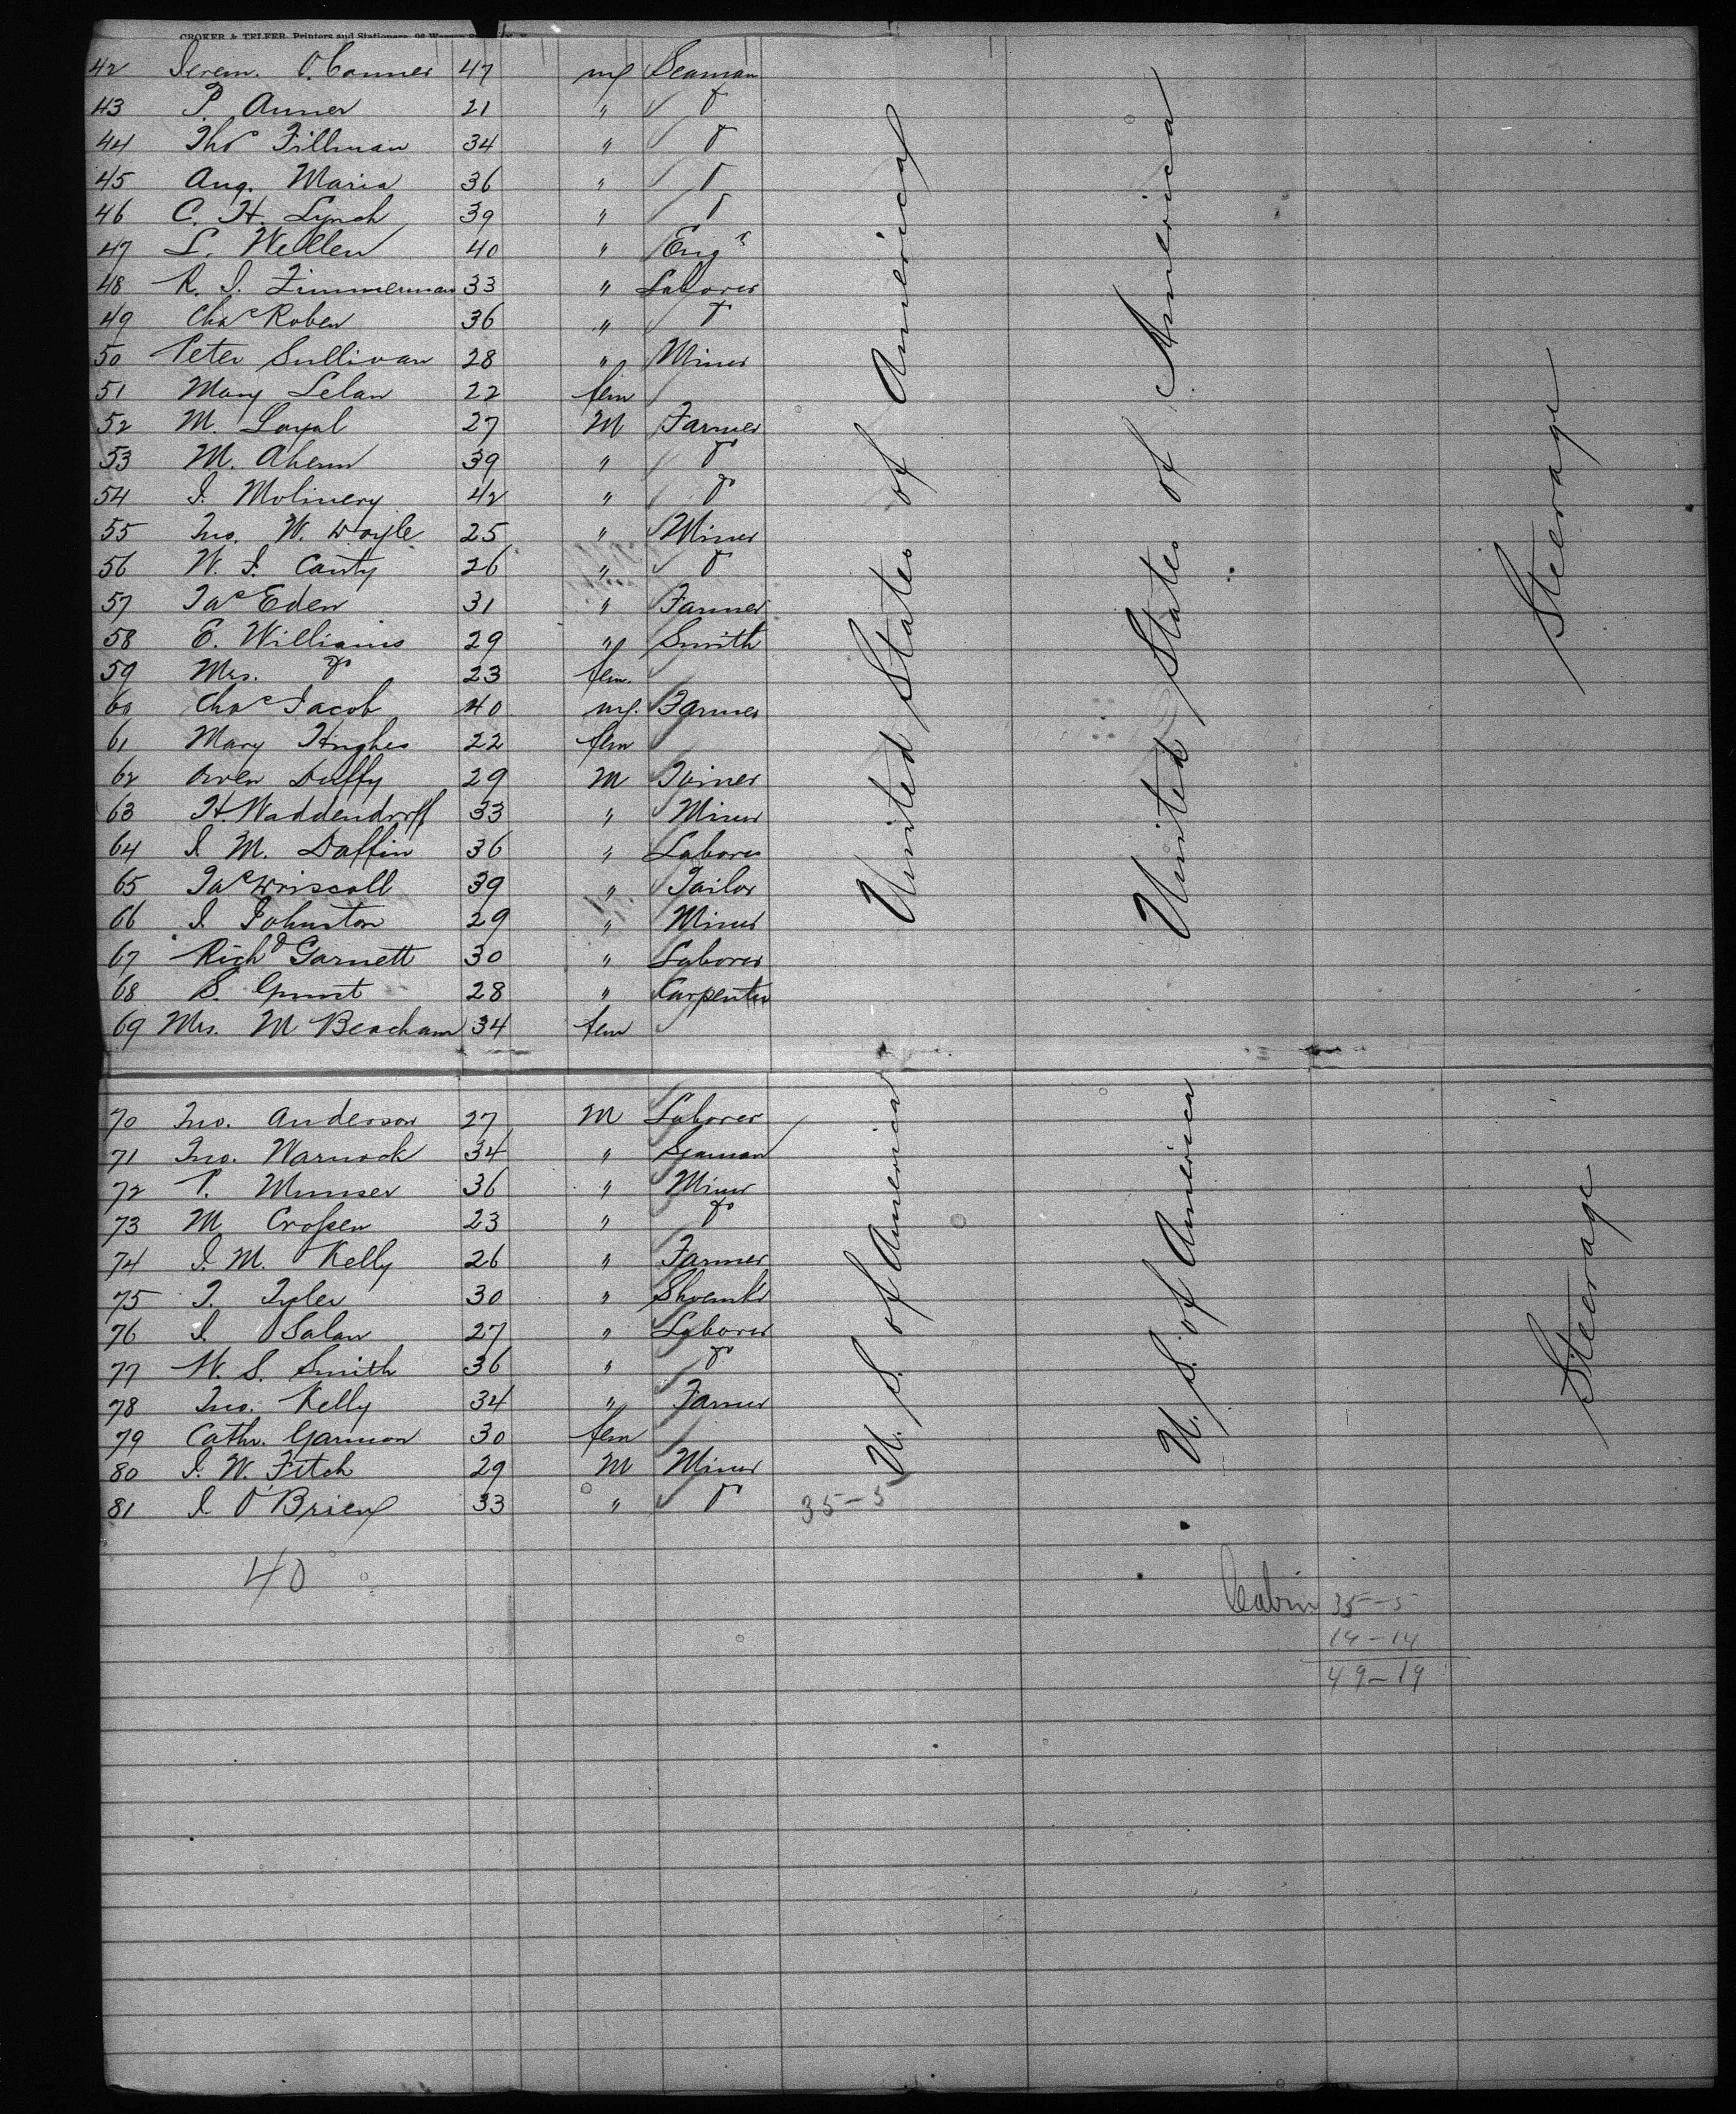 CROKER & TELFER, Printers and Stationers, 96 Warren
42 Jerem. O'Conner 47 m Seaman
43 P. Anner 21 " do
44 Thos Fillman 34 " do
45 Aug. Maria 36 " do
46 C. H. Lynch 39 " do
47 L. Wellen 40 " Engr
48 R. J. Zimmerman 33 " Laborer
49 Chas Roben 36 " do
50 Peter Sullivan 28 " Miner
51 Mary Lelan 22 fem
52 M. Loyal 27 M Farmer
53 M. Ahern 39 " do
54 J. Molinery 42 " do
55 Jno. W. Doyle 25 " Miner
56 W. J. Canty 26 " do
57 Jas Eden 31 " Farmer
58 E. Williams 29 " Smith
59 Mrs. do 23 fem.
60 Chas Jacob 40 m. Farmer
61 Mary Hughes 22 fem
62 Owen Duffy 29 M Joiner
63 H Waddendorff 33 " Miner
64 J. M. Daffin 36 " Laborer
65 Jas Driscoll 39 " Tailor
66 J. Johnston 29 " Miner
67 Richd Garnett 30 " Laborer
68 S. 28 " Carpenter
69 Mrs. M Beacham 34 fem
United States of America
United States of America
Steerage
70 Jno. Anderson 27 M Laborer
71 Jno. Warnock 34 " Seaman
72 P. Munser 36 " Miner
73 M. Crossen 23 " do
74 J. M. Kelly 26 " Farmer
75 T. Tyler 30 " Shoemkr
76 J. Salan 27 " Laborer
77 W. S. Smith 36 " do
78 Jno. Kelly 34 " Farmer
79 Cathr. Garmon 30 fem
80 J. W. Fitch 29 M Miner
81 J. O'Brien 33 " do
U. S. of America
U. S. of America
Steerage
35-5
40
Cabin 35-5
14-14
49-19